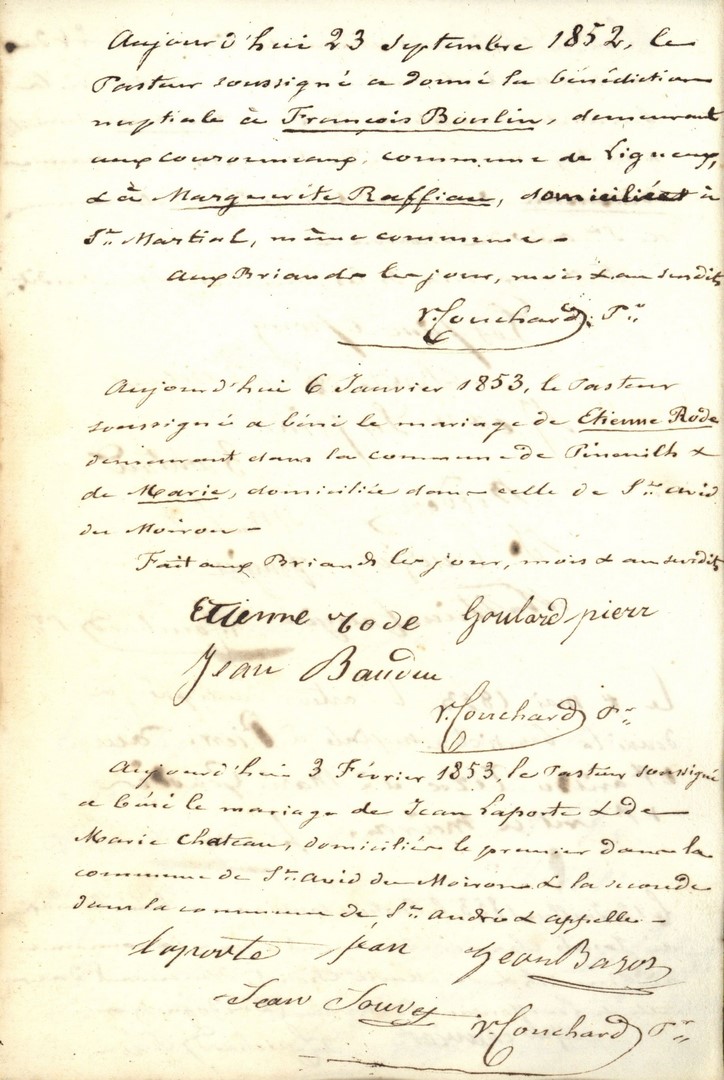 Aujourd'hui 23 Septembre 1852, le
Pasteur soussigné a donné la bénédiction
nuptiale à François Boulin, demeurant
aux commune de Ligueux,
& à Marguerite Raffiau, domiciliée à
St. Martial, même commune -
aux Briands les jour, mois & an susdits
V. Couchard, Pr
Aujourd'hui 6 Janvier 1853, le Pasteur
soussigné a béni le mariage de Etienne Rode
demeurant dans la commune de Pineuilh &
de Marie, domiciliée dans celle de St. avid
du Moiron -
Fait aux Briands les jour, mois & an susdits
Etienne rode Goulard pierr
Jean Baudou
V. Couchard Pr
Aujourd'hui 3 Février 1853, le Pasteur soussigné
a béni le mariage de Jean Laporte & de
Marie Chateau, domiciliés le premier dans la
commune de St. avid du Moiron & la seconde
dans la commune de St. André & appelle -
Laporte jean Jean Bazoz
Jean Jouvez V. Couchard Pr